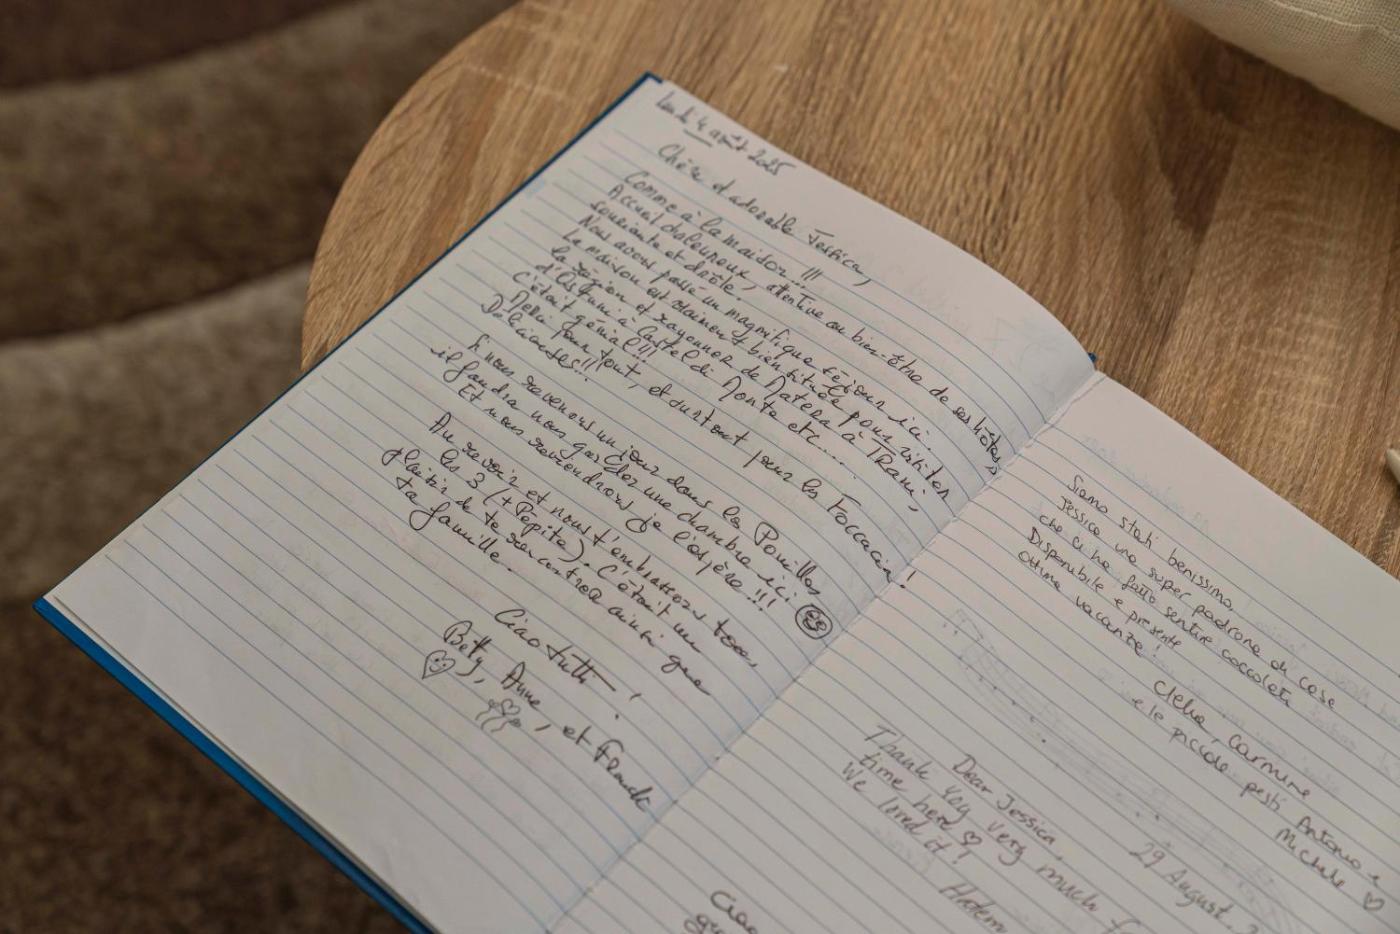 Lundi 4 août 2025
Chère et adorable Jessica,
Comme à la maison !!!
Accueil chaleureux, attentive au bien-être de ses hôtes,
souriante et drôle.
Nous avons passé un magnifique séjour ici.
La maison est vraiment bien située pour visiter
la région et rayonner de Matera à Trani,
d'Ostuni à Castel di Monte etc...
C'était génial !!!
Merci pour tout, et surtout pour les Foccacia !
Délicieuses !!!
Si nous revenons un jour dans les Pouilles
il faudra nous garder une chambre ici
Et nous reviendrons je l'espère !!!
Au revoir et nous t'embrassons tous
les 3 (+ Pépita). C'était un
plaisir de te rencontrer ainsi que
ta famille.
Ciao tutti !
Betty, Anne, et Franck
Siamo stati benissimo,
Jessica una super padrona di casa
che ci ha fatto sentire coccolati
Disponibile e presente
ottima vacanza!
Clelia, Carmine
e le piccole pesti Antonio e
Michele ♡
Dear Jessica,
Thank you very much
time here ♡
We loved it!
29 August
Hatem
Ciao